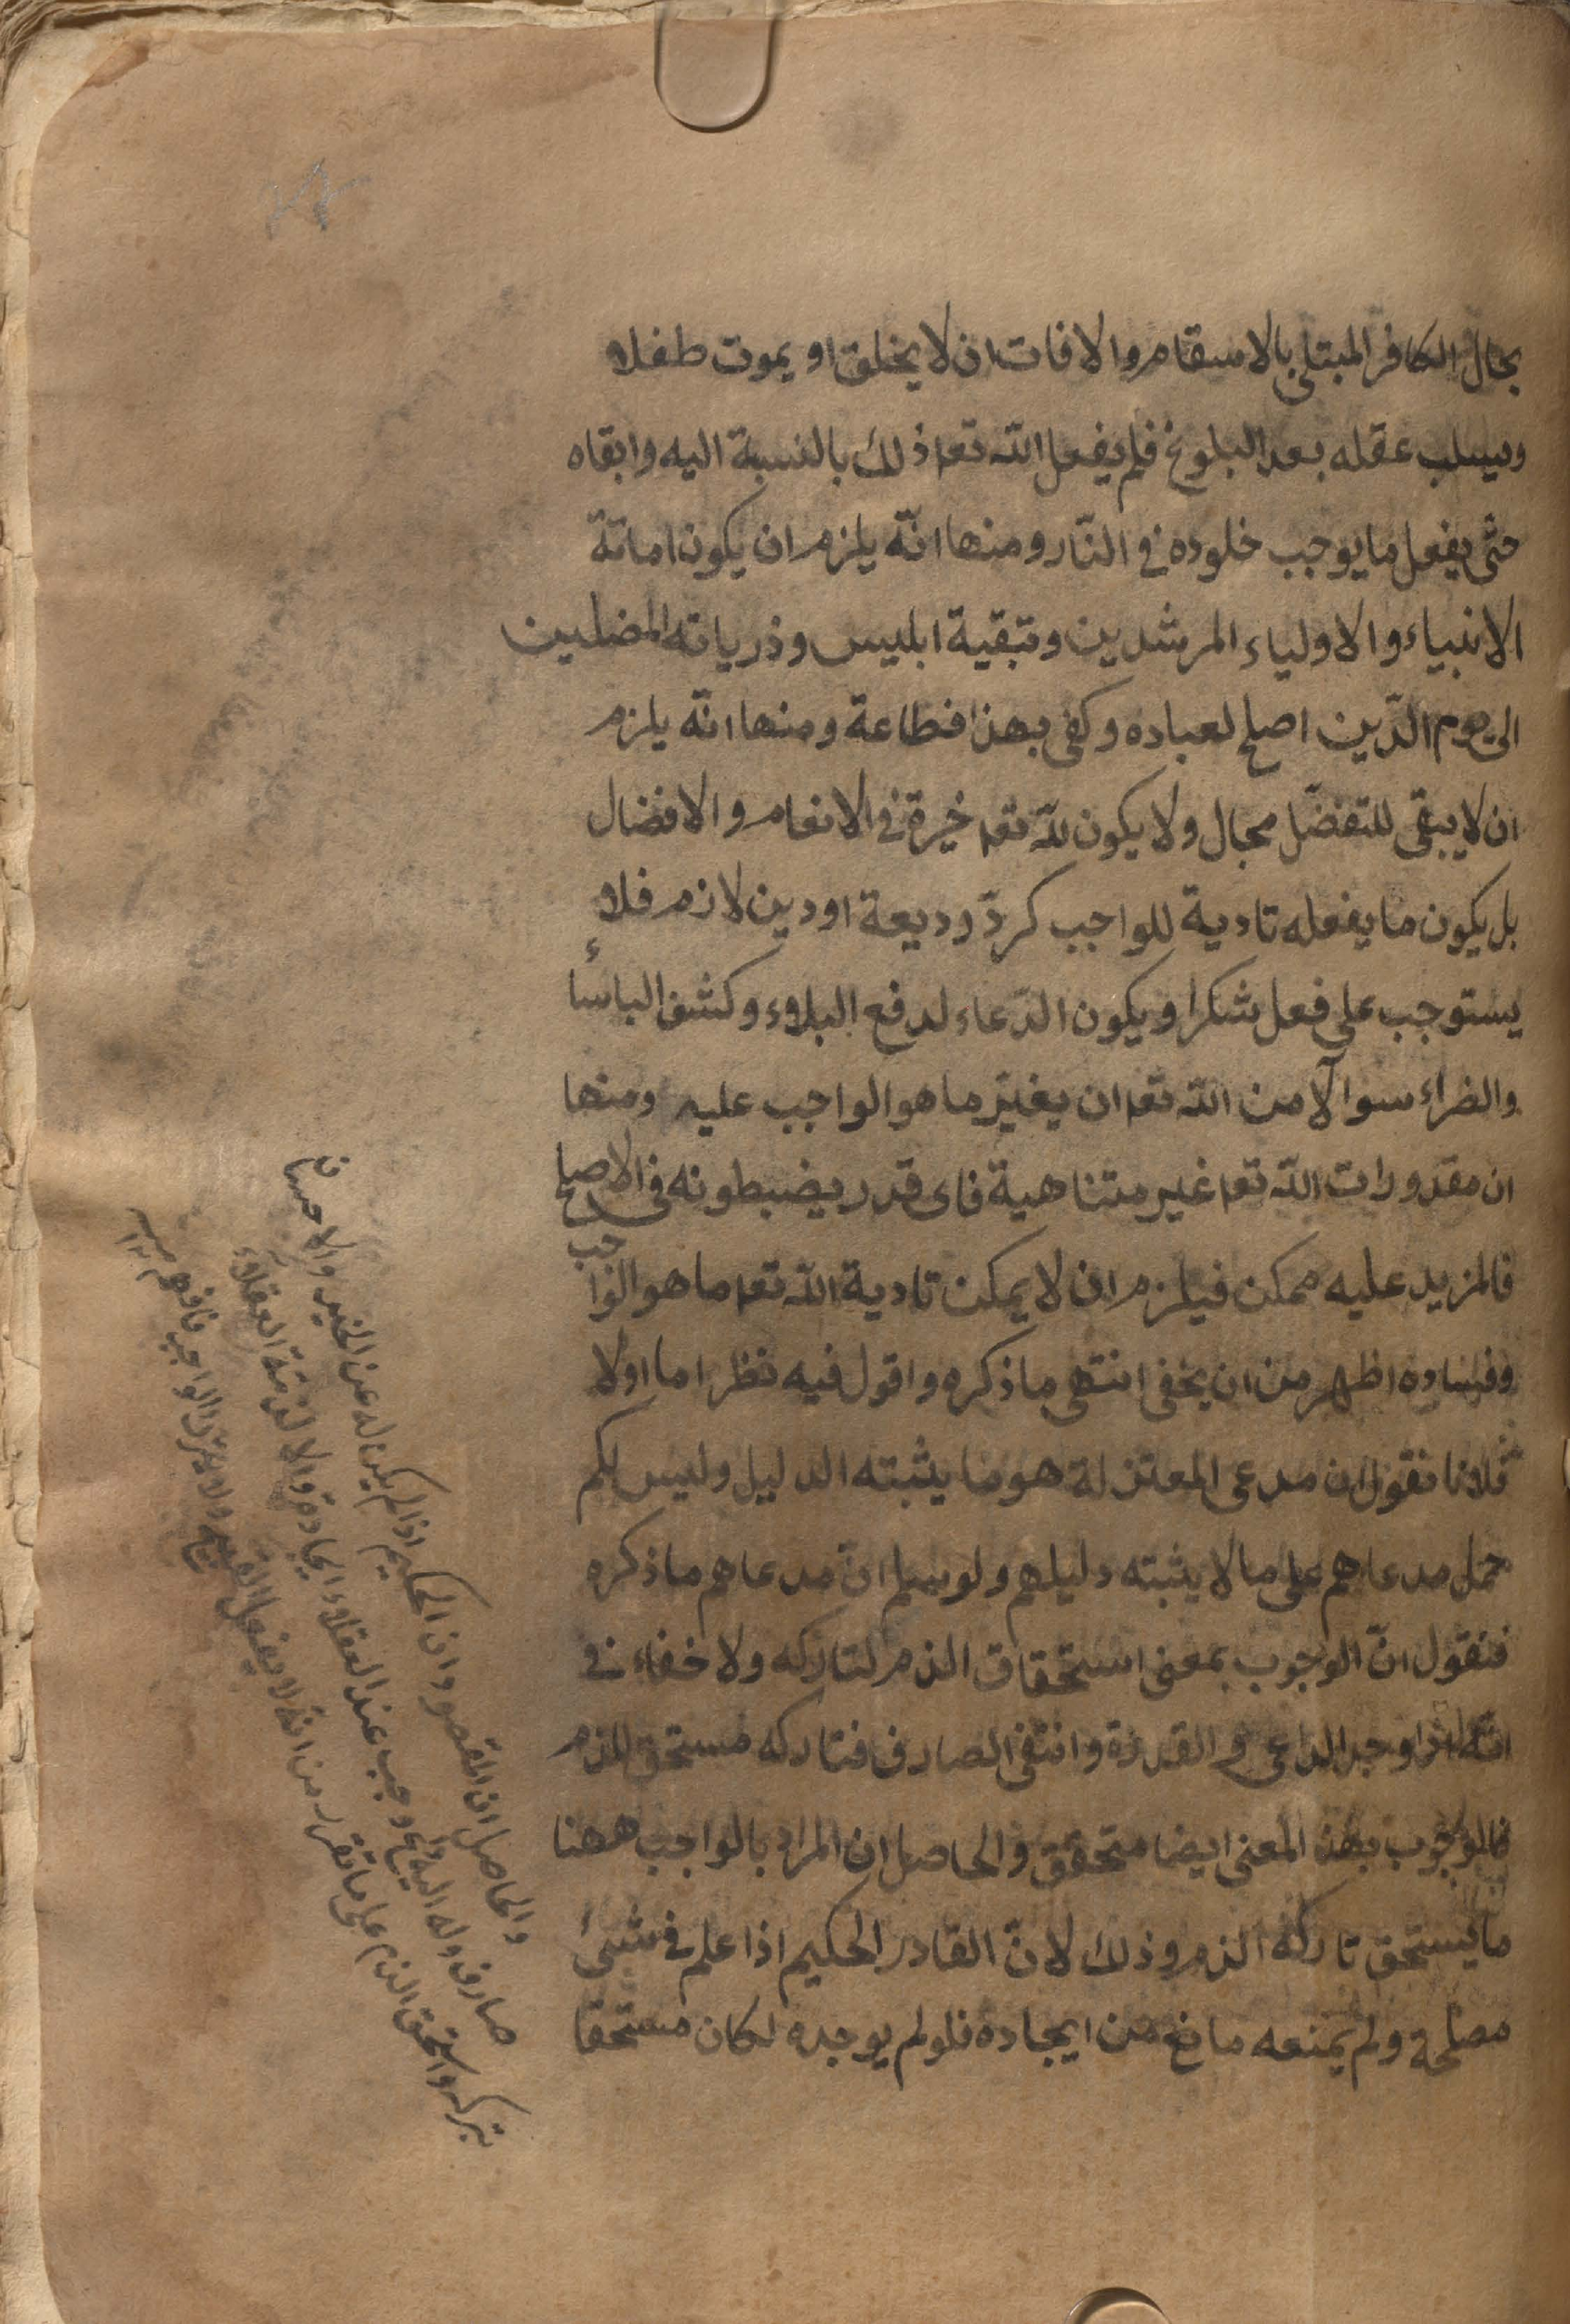 بحال الكافر المبتلى بالاسقام والافات ان لا يخلق او يموت طفلا
ويسلب عقله بعد البلوغ فلم يفعل الله تعه ذلك بالنسبة اليه وابقاه
حتى يفعل ما يوجب خلوده في النّار ومنها انّه يلزم ان يكون اماتة
الانبياء والاولياء المرشدين وتبقية ابليس وذرياته المضلين
الى يوم الدّين اصلح لعباده وكفى بهذا فظاعة ومنها انّه يلزم
ان لا يبقى للتفضّل مجال ولا يكون للّه تعه خيرة في الانعام والافضال
بل يكون ما يفعله تادية للواجب كردّ وديعة او دين لازم فلا
يستوجب على فعل شكرا ويكون الدّعاء لدفع البلاء وكشف الباساء
والضراء سوالا من اللّه تعه ان يغيّر ما هو الواجب عليه ومنها
ان مقدورات اللّه تعه غير متناهية فاى قدر يضبطونه في الاصلح
فالمزيد عليه ممكن فيلزم ان لا يمكن تادية اللّه تعه ما هو الواجب
وفساده اظهر من ان يخفى انتهى ما ذكره واقول فيه نظر اما اولا
فلانا نقول ان مدعى المعتزلة هو ما يثبته الدليل وليس لكم
حمل مدعاهم على ما لا يثبته دليلهم ولو سلم انّ مدعاهم ما ذكره
فنقول انّ الوجوب بمعنى استحقاق الذم لتاركه ولا خفاء في
انّه اذا وجد الداعى والقدرة وانتفى الصارف فتاركه مستحق للذم
فالوجوب بهذا المعنى ايضا متحقق والحاصل ان المراد بالواجب ههنا
ما يستحق تاركه الذم وذلك لانّ القادر الحكيم اذا علم في شئ
مصلحة ولم يمنعه مانع من ايجاده فلو لم يوجده لكان مستحقا
والحاصل ان المقصود ان الحكيم اذا لم يكن له عن الخير والاحسان
صارف وله اليه داع وجب عند العقلاء ايجاده والا لذمته العقلاء
بتركه واستحق الذم على ما تقرر من انه لا يفعل القبيح ولا يترك الواجب فافهم